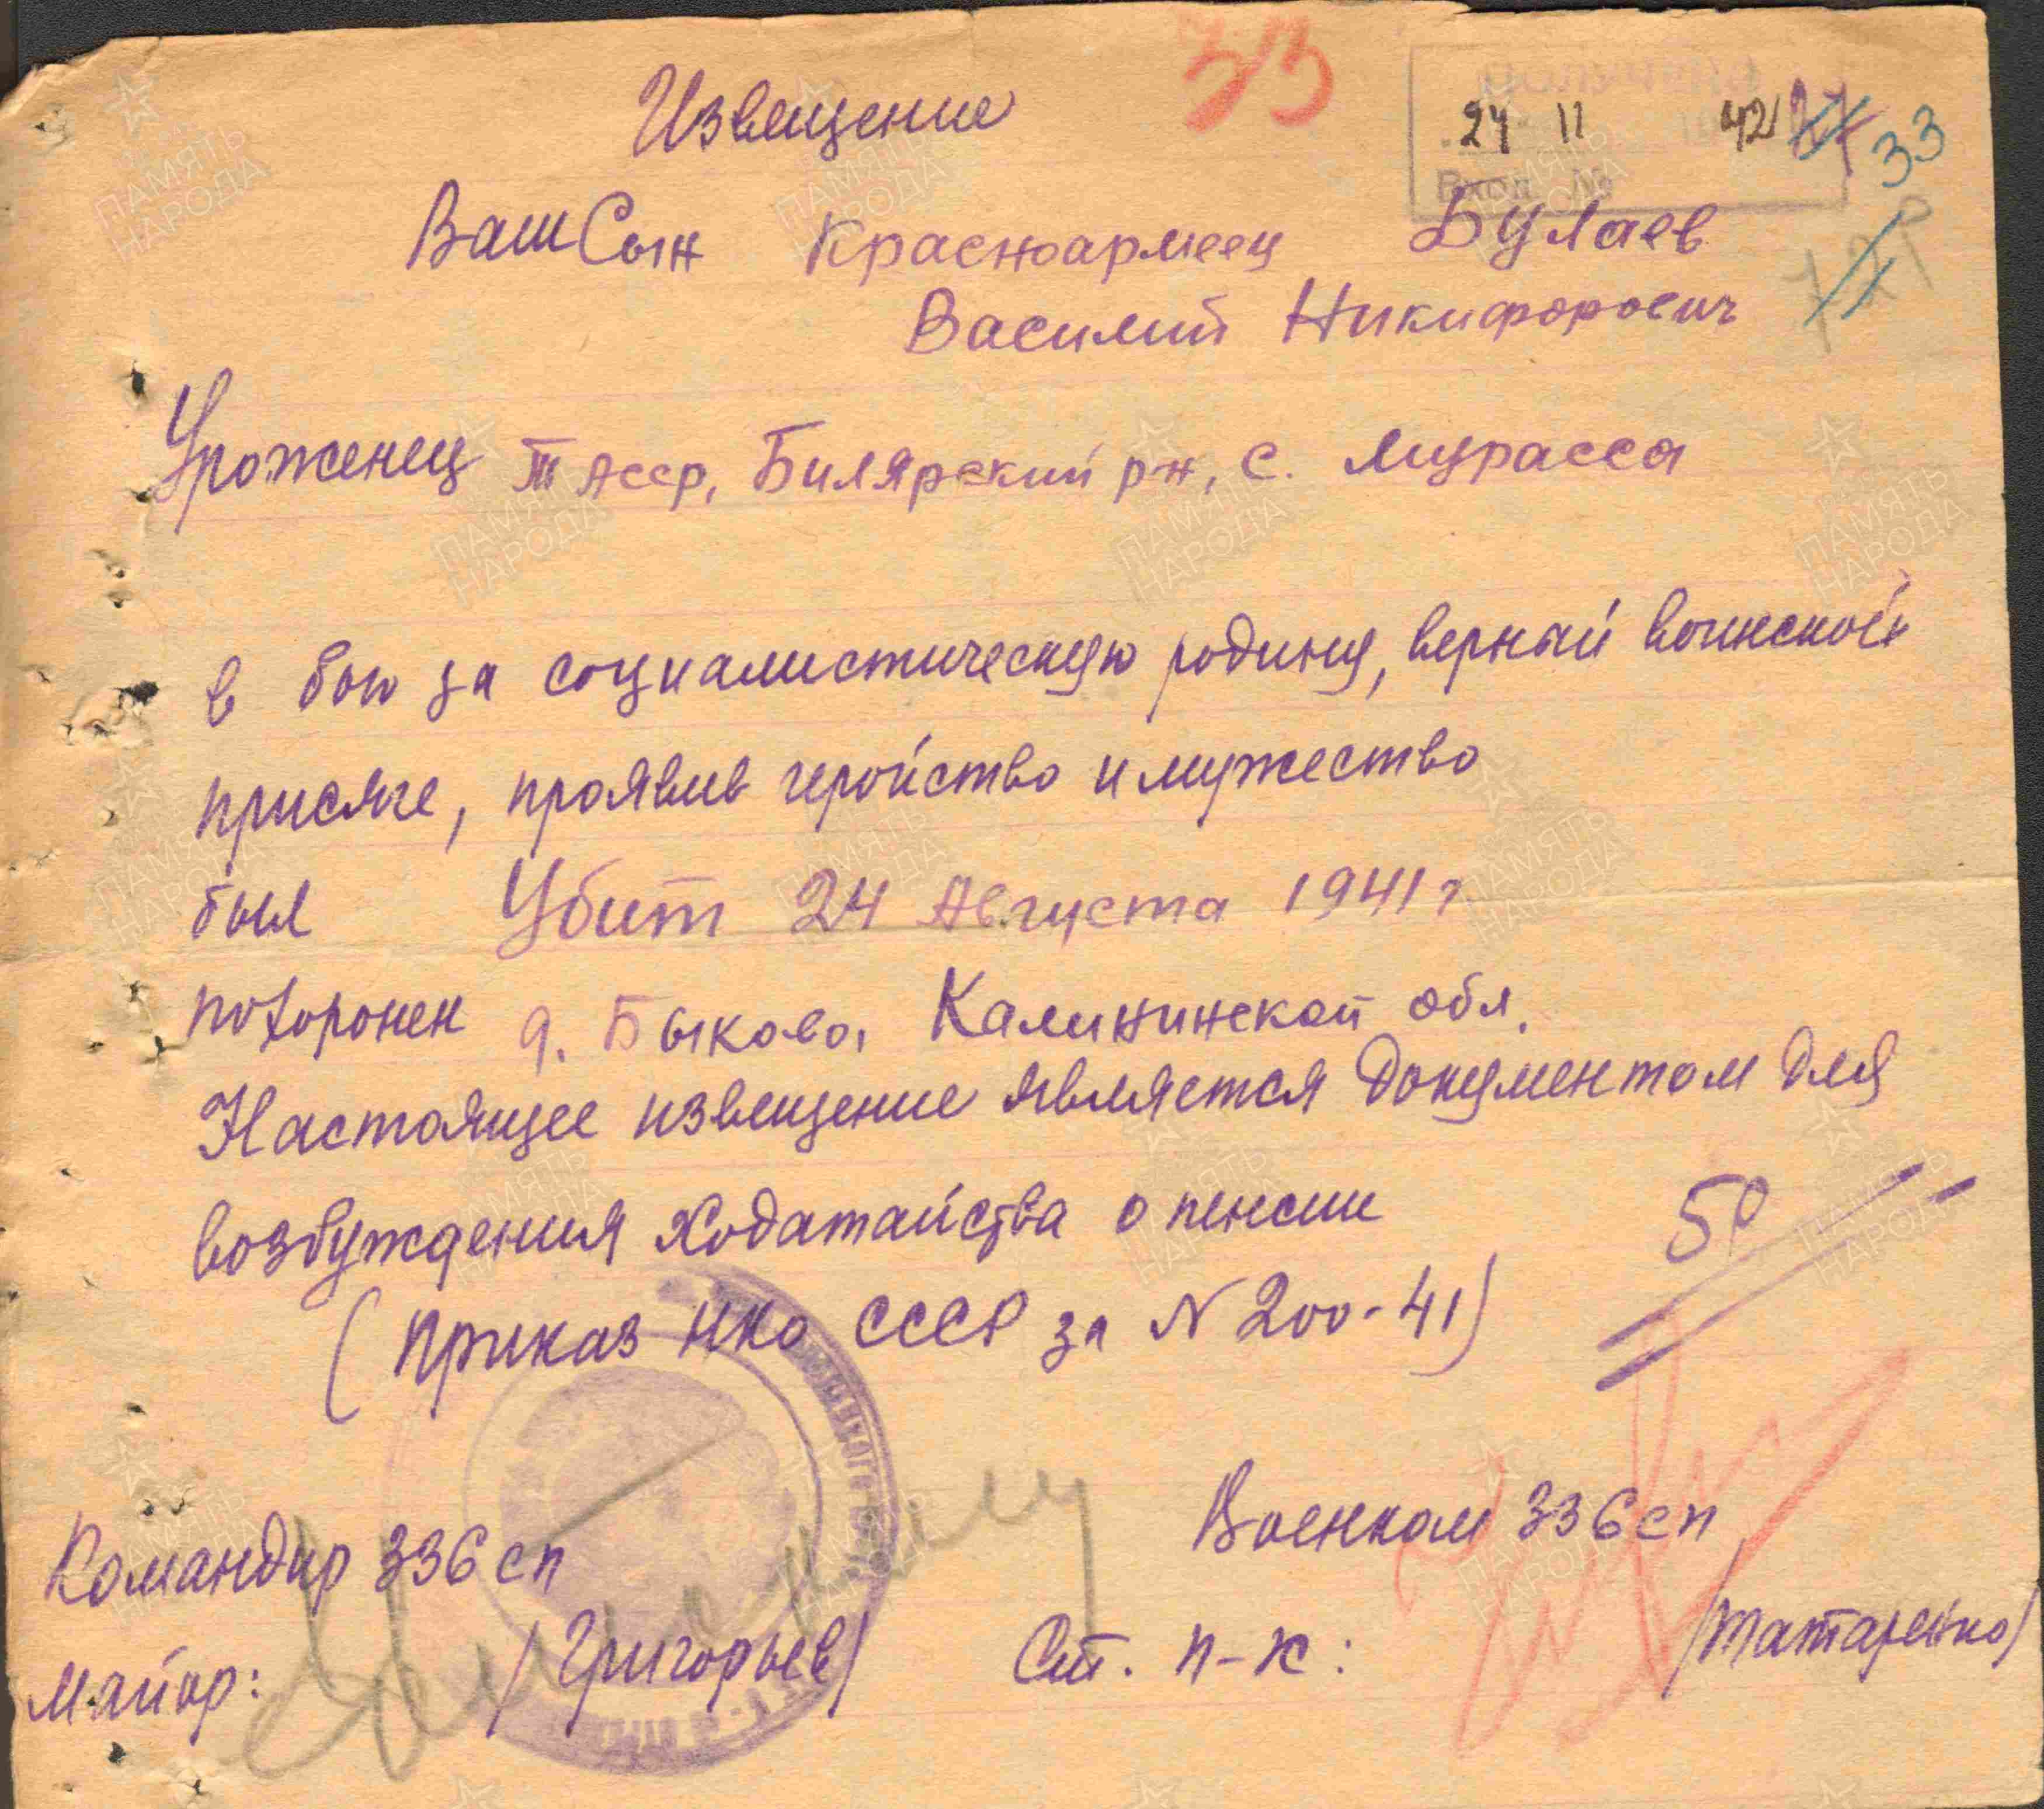 33
Извещение
24 II 42
33
Вход №
Ваш Сын Красноармеец Булаев
Василий Никифорович
Уроженец ТАССР, Билярский р-н, с. Мурасса
в бою за социалистическую родину, верный воинской
присяге, проявив геройство и мужество
был Убит 24 Августа 1941 г
похоронен д. Быково, Калининской обл.
Настоящее извещение является документом для
возбуждения ходатайства о пенсии
(Приказ НКО СССР за N 200-41)
50
Командир 336 сп
Военком 336 сп
Майор: /Григорьев/
Ст. п-к: /Татаренко/
ПАМЯТЬ НАРОДА